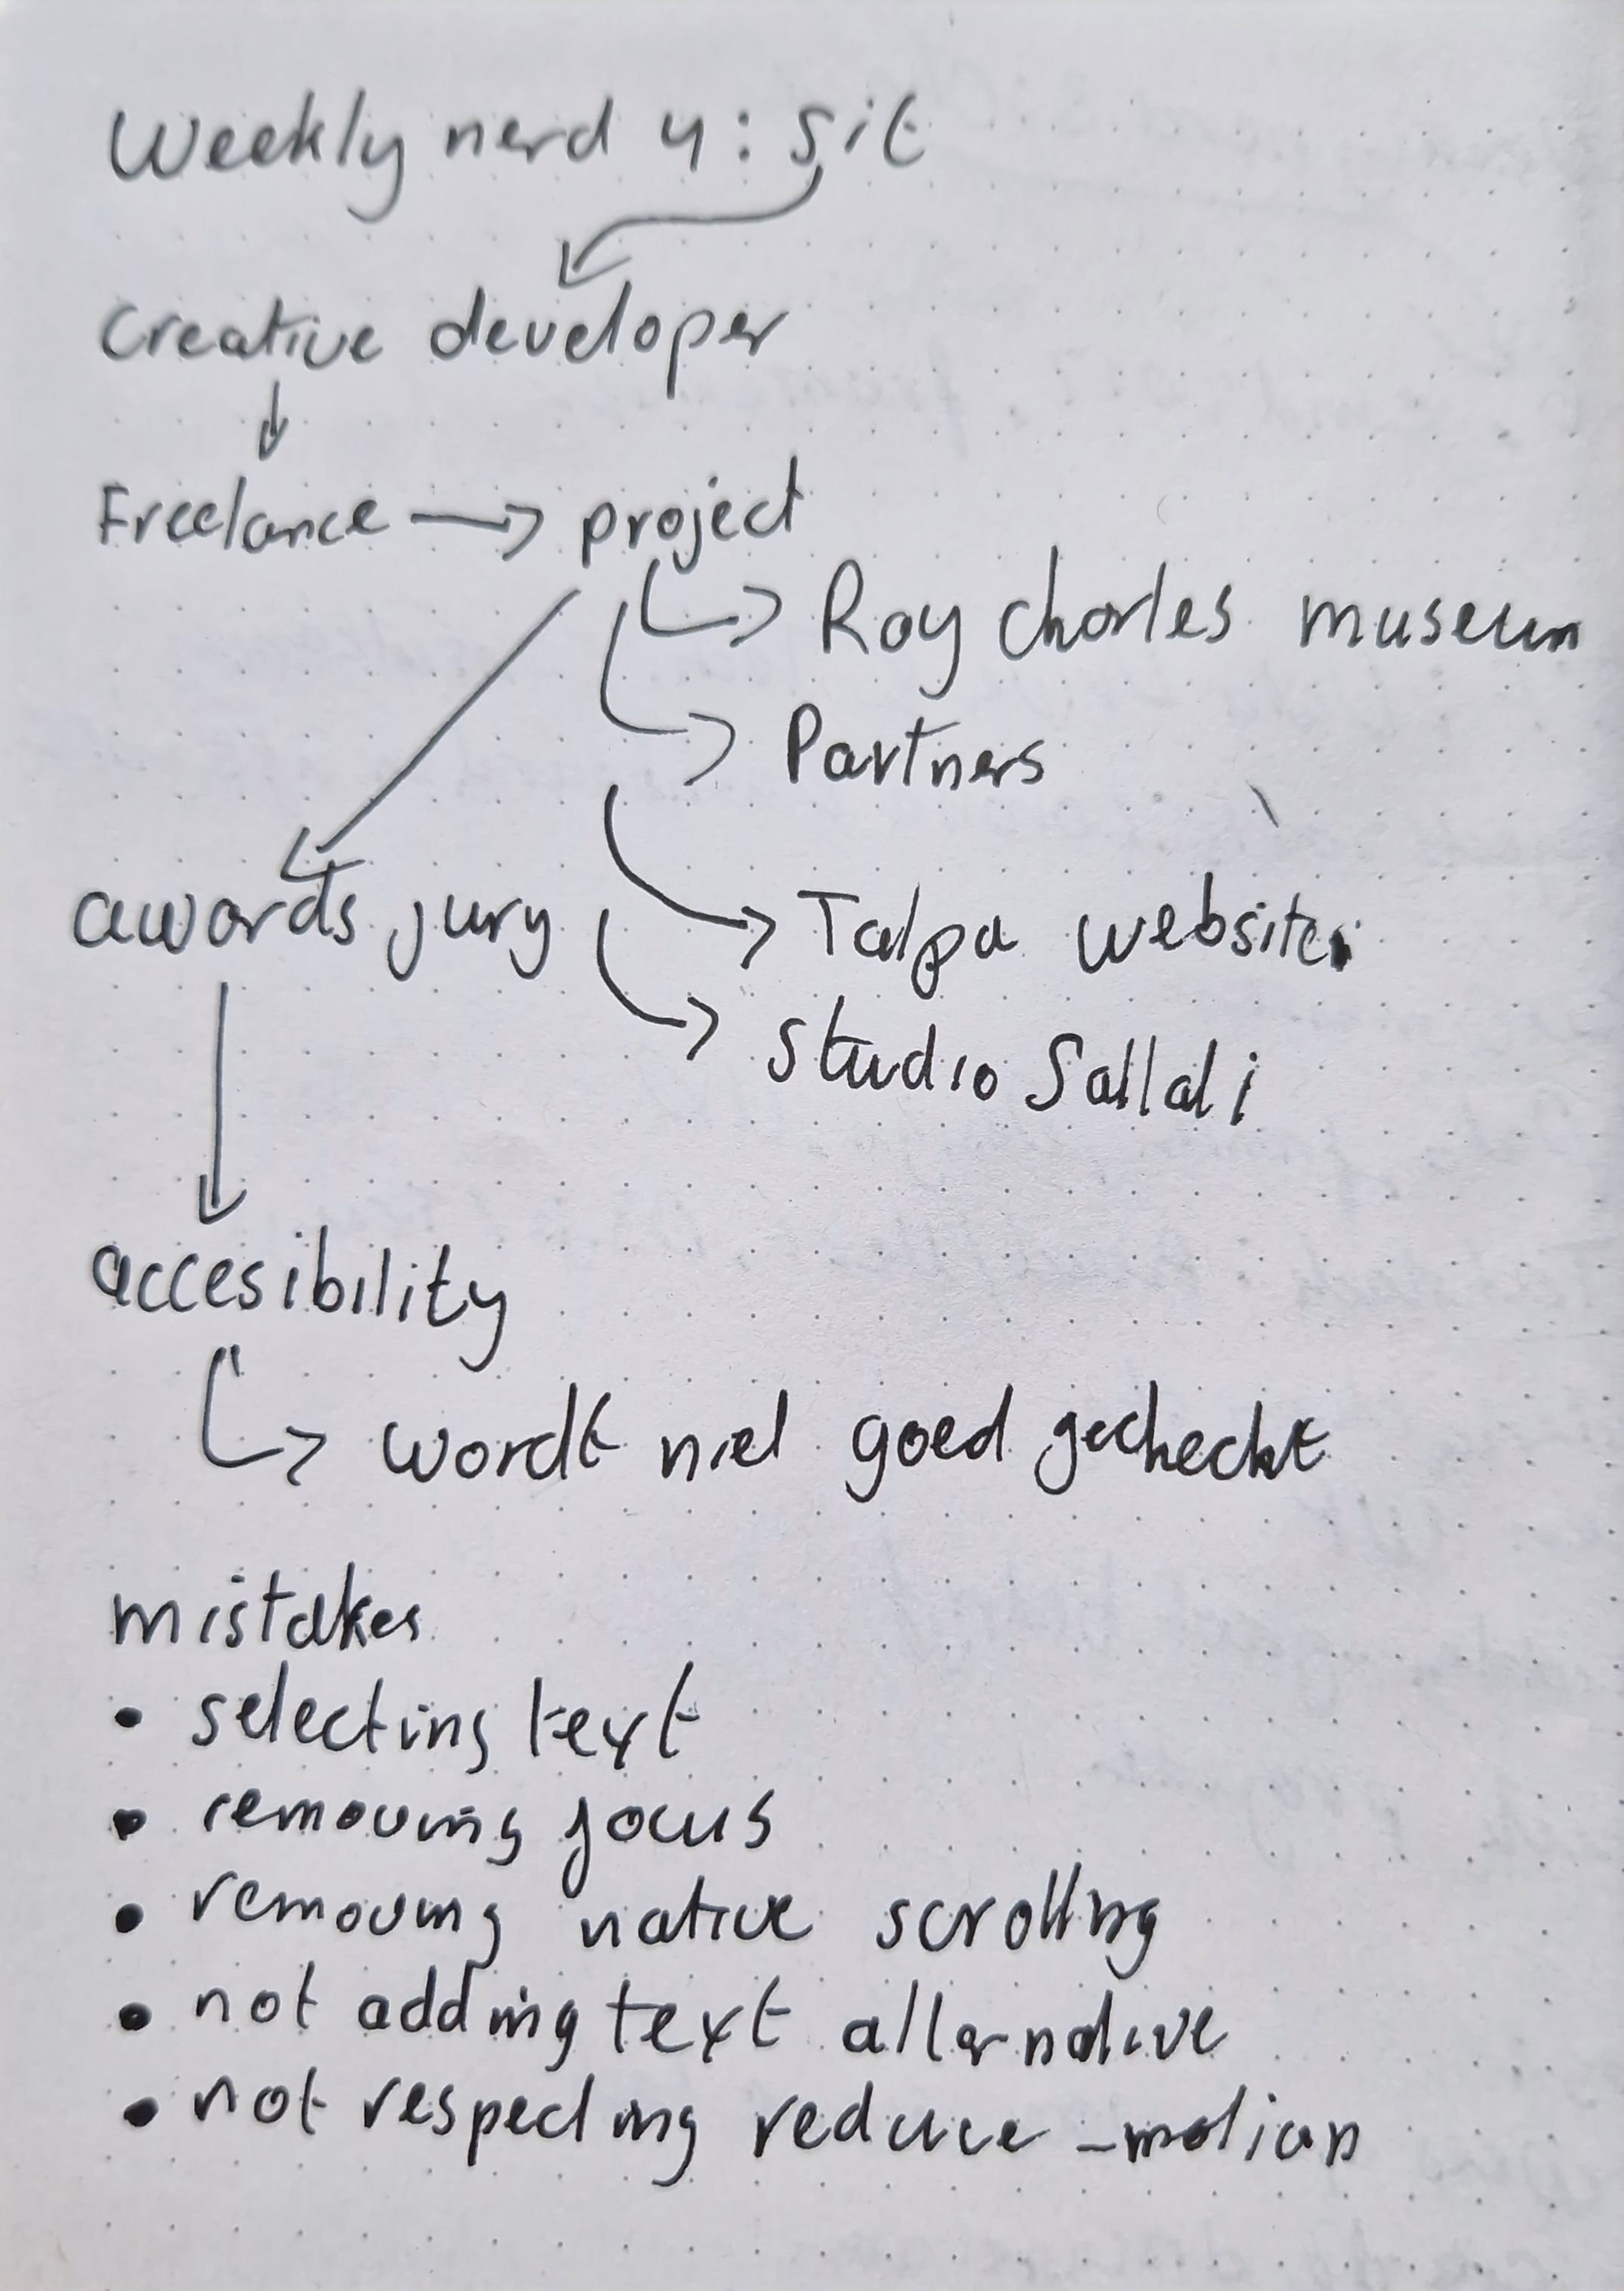 Weekly nerd 4: sit
Creative developer
Freelance → project
Ray charles museum
Partners
awards jury
Talpa website
Studio Sallali
accesibility
wordt niet goed gecheckt
mistakes
• selecting text
• removing focus
• removing native scrolling
• not adding text alternative
• not respecting reduce-motion